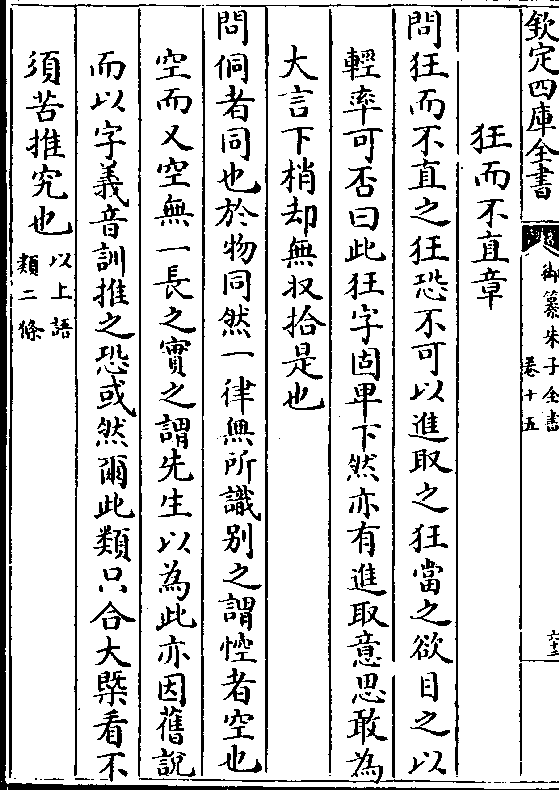 欽定四庫全書
御纂朱子全書
卷十五
六十三
狂而不直章
問狂而不直之狂恐不可以進取之狂當之欲目之以
輕率可否曰此狂字固卑下然亦有進取意思敢為
大言下梢却無収拾是也
問侗者同也於物同然一律無所識别之謂悾者空也
空而又空無一長之實之謂先生以為此亦因舊說
而以字義音訓推之恐或然爾此類只合大槩看不
須苦推究也以上語
類二條